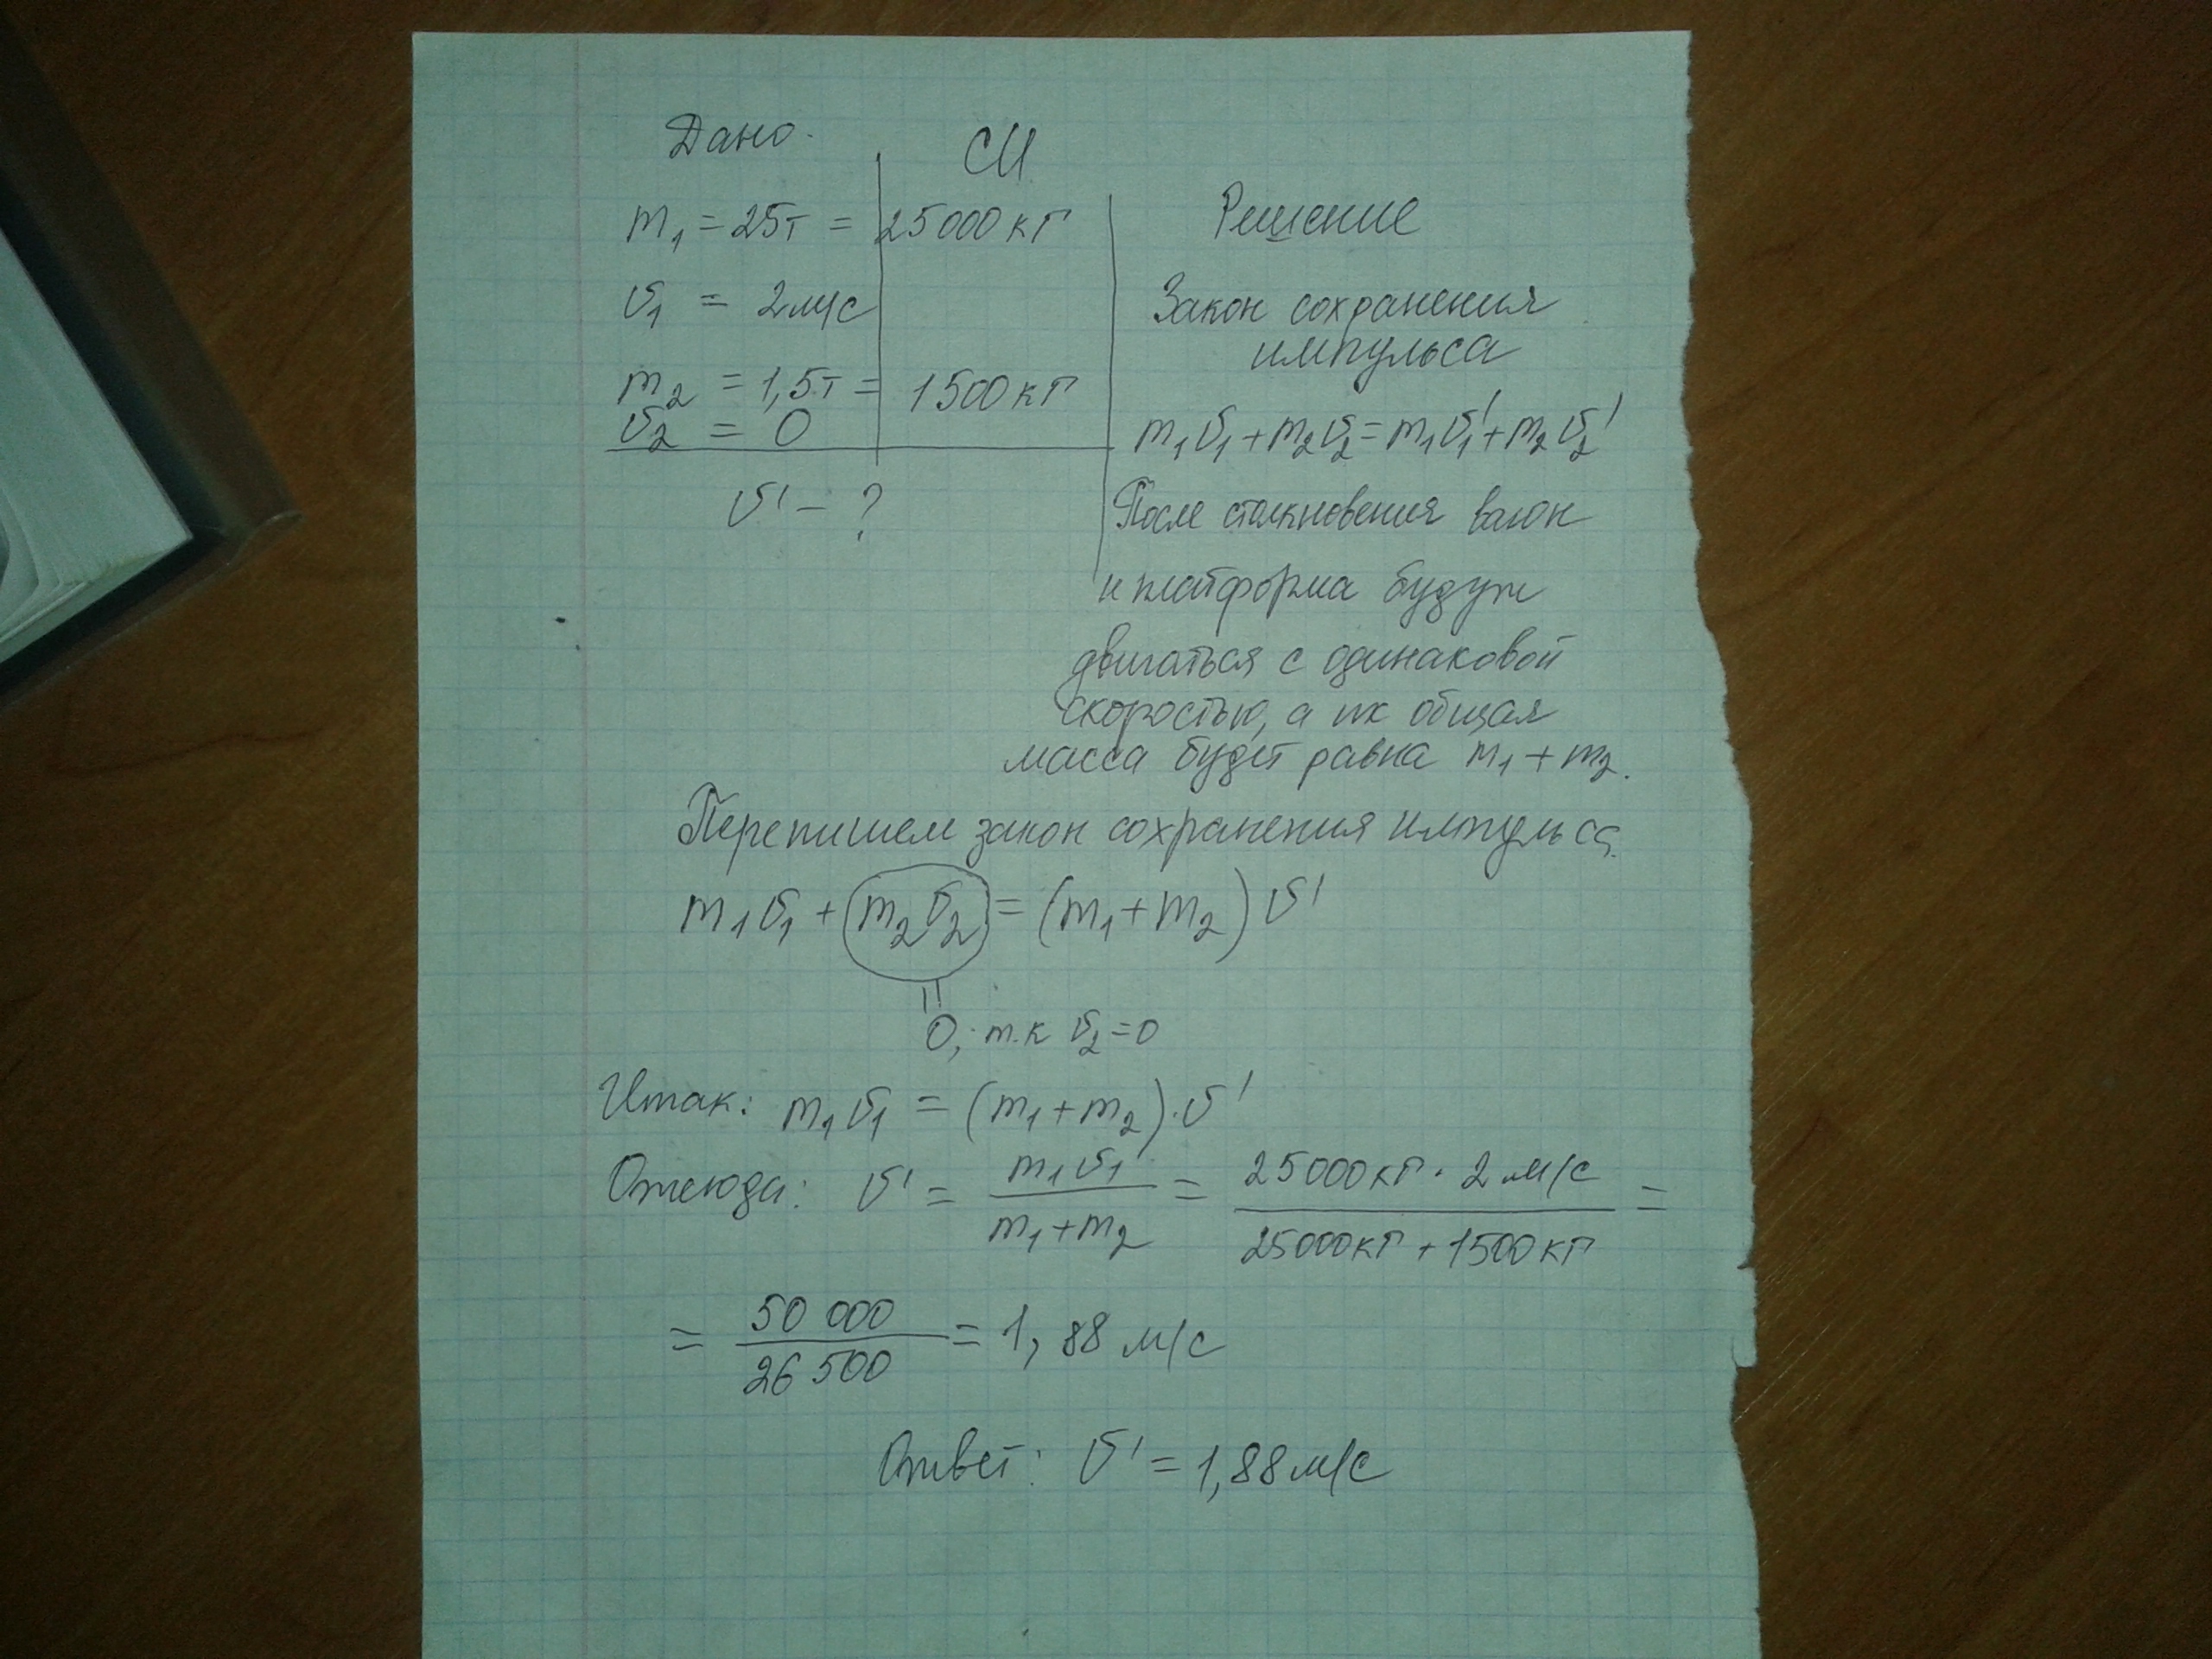 Дано.
СИ
m₁ = 25т = 25000 кг
Решение
v₁ = 2 м/с
Закон сохранения
импульса
m₂ = 1,5т = 1500 кг
v₂ = 0
m₁v₁ + m₂v₂ = m₁v₁' + m₂v₂'
v' - ?
После столкновения вагон
и платформа будут
двигаться с одинаковой
скоростью, а их общая
масса будет равна m₁ + m₂.
Перепишем закон сохранения импульса.
m₁v₁ + m₂v₂ = (m₁ + m₂) v'
=
0, т.к v₂ = 0
Итак: m₁v₁ = (m₁ + m₂) · v'
Отсюда: v' = m₁v₁ / m₁ + m₂ = 25000 кг · 2 м/с / 25000 кг + 1500 кг =
= 50 000 / 26 500 = 1, 88 м/с
Ответ: v' = 1,88 м/с